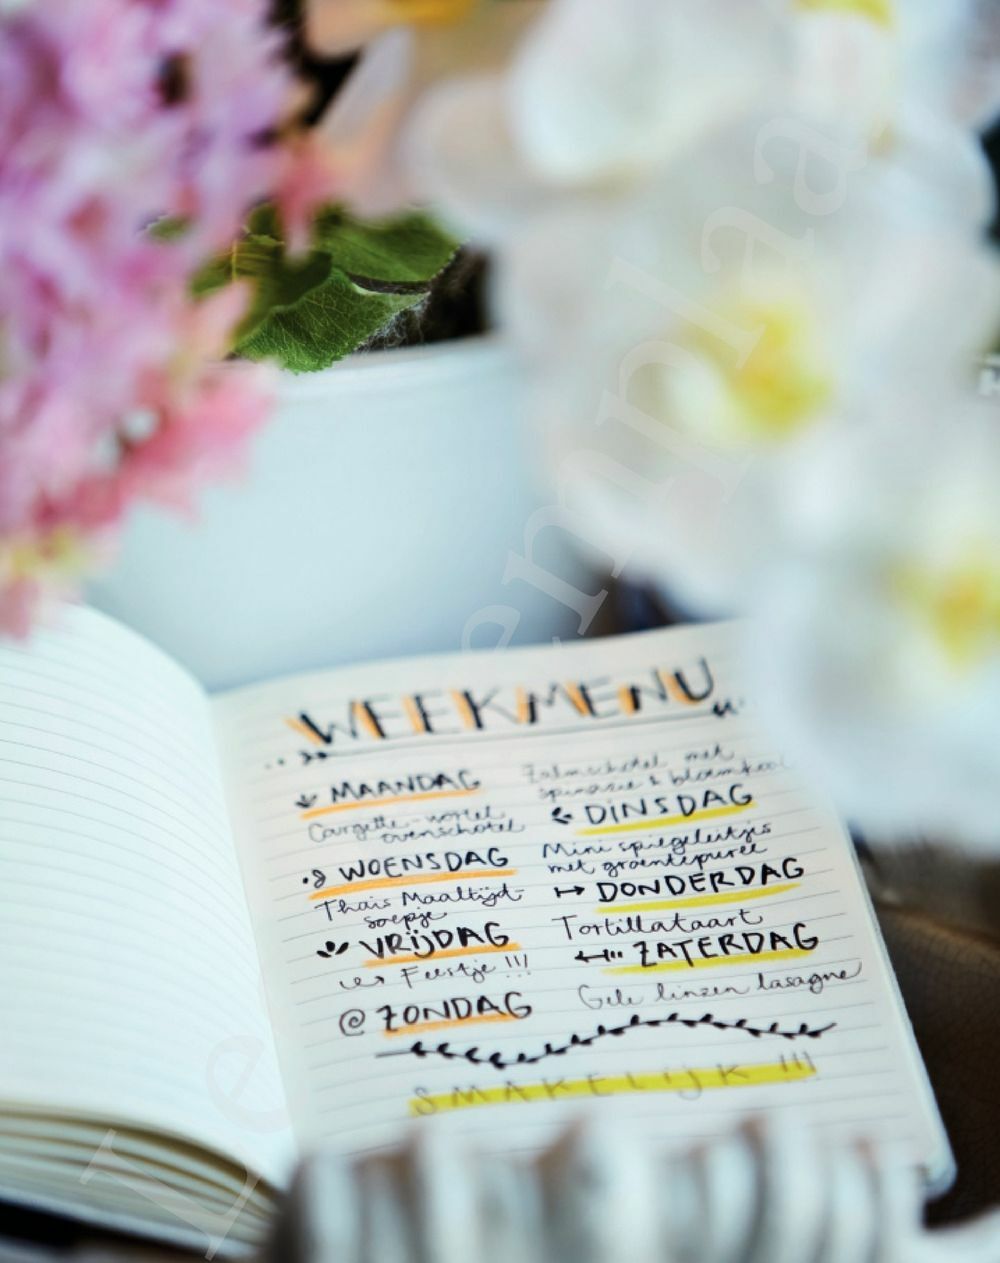 WEEKMENU
MAANDAG
Courgette-wortel
ovenschotel
WOENSDAG
Thais Maaltijd-
soepje
VRIJDAG
Feestje !!!
@ ZONDAG
Zalmschotel met
spinazie & bloemkool
DINSDAG
Mini spiegeleitjes
met groentepuree
DONDERDAG
Tortillataart
ZATERDAG
Gele linzen lasagne
SMAKELIJK !!!